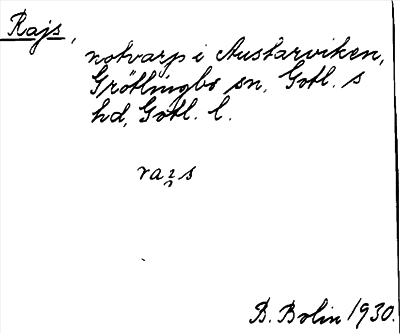 Rajs,
notvarp i Austarviken,
Grötlingbo sn, Gotl. s
hd, Gotl. l.
rai̯s
B. Bolin 1930.